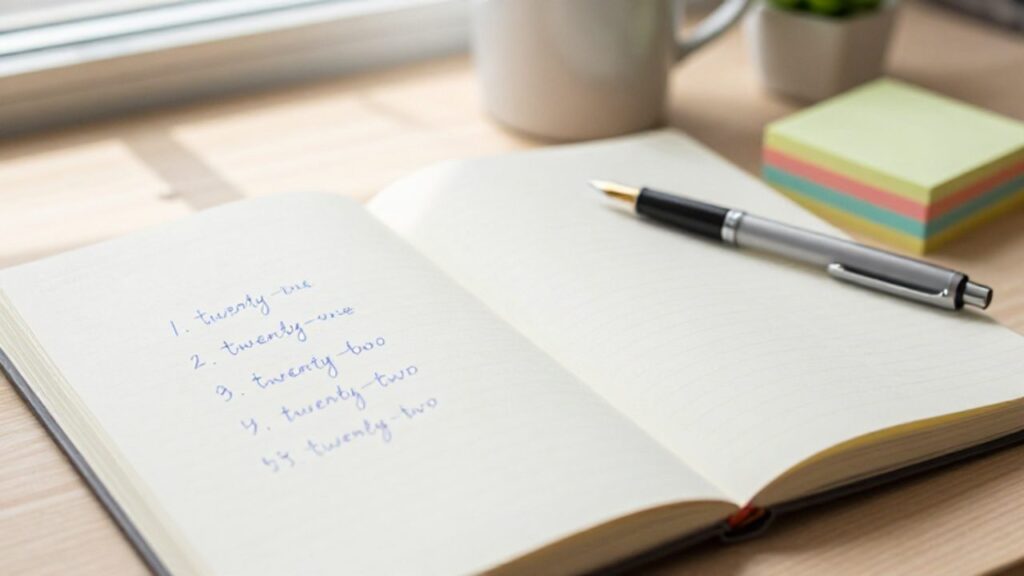 1. twenty-one
2. twenty-one
3. twenty-too
4. twenty-two
twenty-two